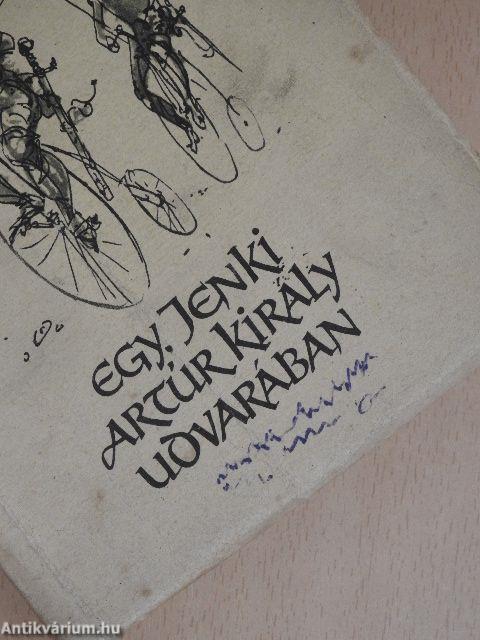 EGY JENKI
ARTÚR KIRÁLY
UDVARÁBAN
Antikvárium.hu